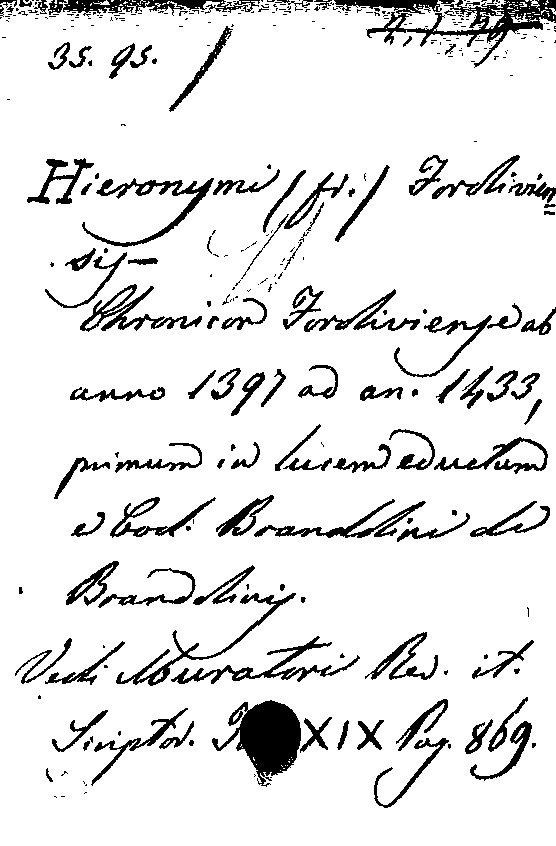 2,1,79
35. 95.
Hieronymi /fr./ Foroliviene
sis
Chronicon Foroliviense ab
anno 1397 ad an. 1433,
primum in lucem eductum
e Cod. Brandolini de
Brandolinis.
Vedi Muratori Rer. it.
Scriptor. XIX Pag. 869.